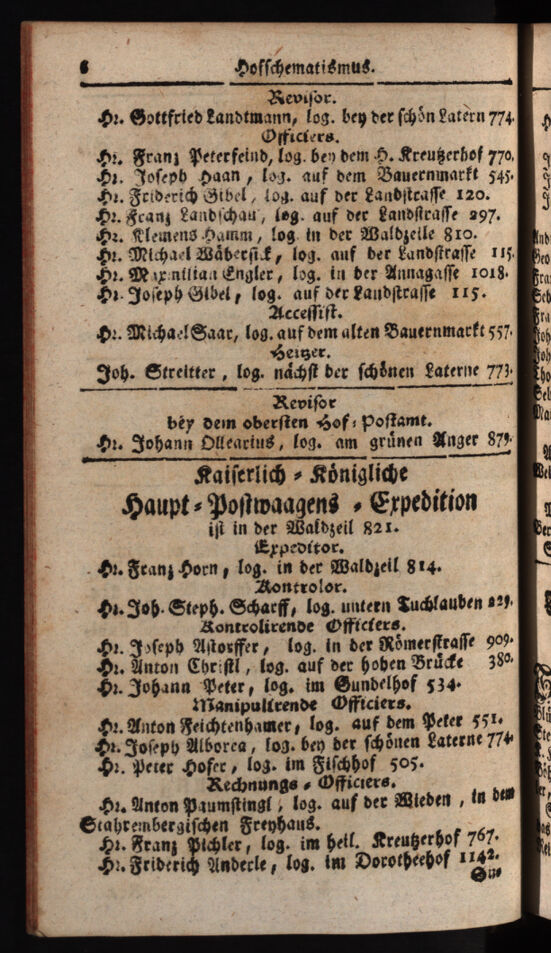 6 Hofschematismus.
Revisor.
Hr. Gottfried Landtmann, log. bey der schön Latern 774.
Officiers.
Hr. Franz Peterfeind, log. bey dem H. Kreutzerhof 770.
Hr. Joseph Haan, log. auf dem Bauernmarkt 545.
Hr. Friderich Gibel, log. auf der Landstrasse 120.
Hr. Franz Landschau, log. auf der Landstrasse 297.
Hr. Klemens Hamm, log. in der Waldzeile 810.
Hr. Michael Wäbersick, log. auf der Landstrasse 115.
Hr. Maximilian Engler, log. in der Annagasse 1018.
Hr. Joseph Gibel, log. auf der Landstrasse 115.
Accessist.
Hr. Michael Saar, log. auf dem alten Bauernmarkt 557.
Heitzer.
Joh. Streitter, log. nächst der schönen Laterne 773.
Revisor
bey dem obersten Hof-Postamt.
Hr. Johann Ollearius, log. am grünen Anger 879.
Kaiserlich-Königliche
Haupt-Postwaagens-Expedition
ist in der Waldzeil 821.
Expeditor.
Hr. Franz Horn, log. in der Waldzeil 814.
Kontrolor.
Hr. Joh. Steph. Scharff, log. untern Tuchlauben 229.
Kontrolirende Officiers.
Hr. Joseph Astorffer, log. in der Römerstrasse 909.
Hr. Anton Christl, log. auf der hohen Brücke 380.
Hr. Johann Peter, log. im Gundelhof 534.
Manipulirende Officiers.
Hr. Anton Feichtenhamer, log. auf dem Peter 551.
Hr. Joseph Alborea, log. bey der schönen Laterne 774.
Hr. Peter Hofer, log. im Fischhof 505.
Rechnungs-Officiers.
Hr. Anton Paumstingl, log. auf der Wieden, in dem
Stahrembergischen Freyhaus.
Hr. Franz Pichler, log. im heil. Kreutzerhof 767.
Hr. Friderich Anderle, log. im Dorotheehof 1142.